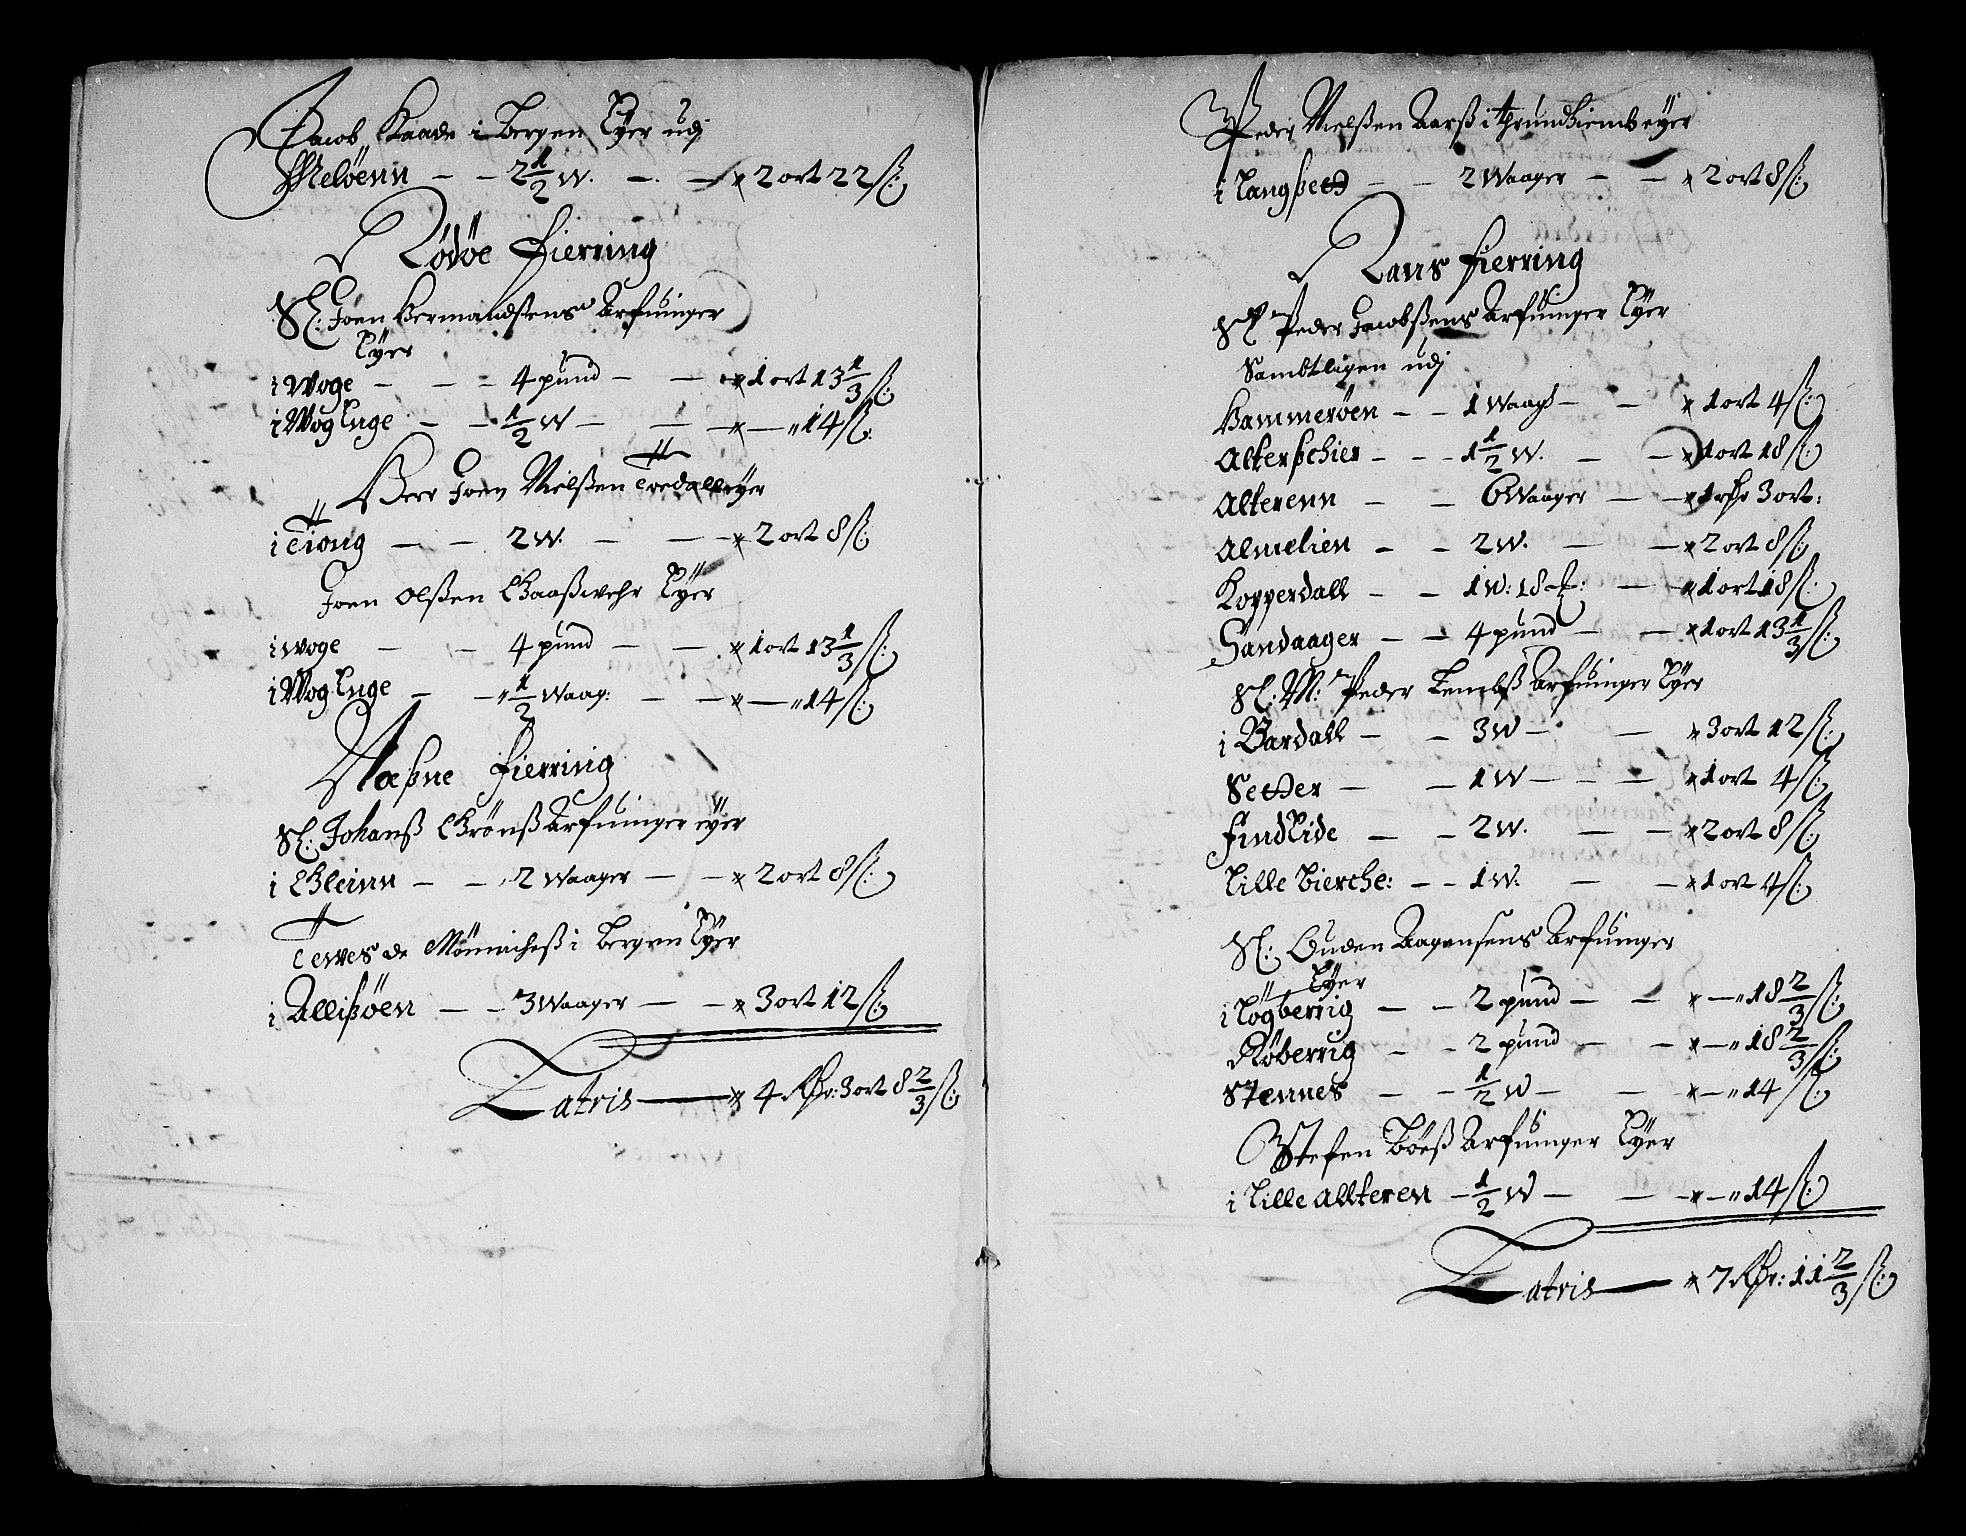 Jacob Kaade i Bergen Eyer udj
Meløenn — — 2 1/2 W. — — 2 ort 22 ß:
Rødøe Fierring
Sl: Joen Hermandsens Arfuinger
Eyer
i Woge — — — 4 pund — — 1 ort 13 1/3 ß:
i Wog Enge — — 1/2 W — — — „ 14 ß:
Herr Joen Nielßen eyer
i Tiong — — 2 W. — — 2 ort 8 ß:
Joen Olßen Eyer
i woge — — 4 pund — — 1 ort 13 1/3 ß:
i Wog Enge — — „ 1/2 Waag: — — — „ 14 ß:
Næßne Fierring
Sl: Johanß Grönß Arfuinger eyer
i Gleinn — — 2 Waager — — 2 ort 8 ß:
Tewes de Mönnicheß i Bergen Eyer
i Allißöen — — 3 Waager — — 3 ort 12 ß:
Latris — 4 Rdr: 3 ort 8 2/3 ß:
Peder Nielßen Aarß i Thrundhiemb eyer
i Langßett — — 2 Waager — — 2 ort 8 ß:
Rans fierring
Sl Peder Jacobßens Arfuinger Eyer
Sambtligen udj
Hammerøen — — 1 Waag — — 1 ort 4 ß:
Alterßchier — — — 1 1/2 W. — — 1 ort 18 ß:
Alterenn — — 6 Waager — — 1 rdr 3 ort:
Almelien — — 2 W. — — 2 ort 8 ß:
Kopperdall — — 1 W: 18 — 1 ort 18 ß:
Sandaager — — 4 pund — — 1 ort 13 1/3 ß:
Sl: M: Peder Arfuinger Eyer
i Bardall — — 3 W — — 3 ort 12 ß:
Setter — — 1 W — — — 1 ort 4 ß:
Findlide — — 2 W. — — 2 ort 8 ß:
Lille Bierche: — — 1 W. — — 1 ort 4 ß:
Sl: Ouden Aagensens Arfuinger
Eyer
i Løgberrig — — 2 pund — — — „ 18 2/3 ß:
Røberrig — — 2 pund — — — „ 18 2/3 ß:
Stennes — — 1/2 W — — — „ 14 ß:
Stefen Böeß Arfuinger Eyer
i Lille Allteren — 1/2 W — — — „ 14 ß:
Latris — 7 Rdr: 11 2/3 ß: